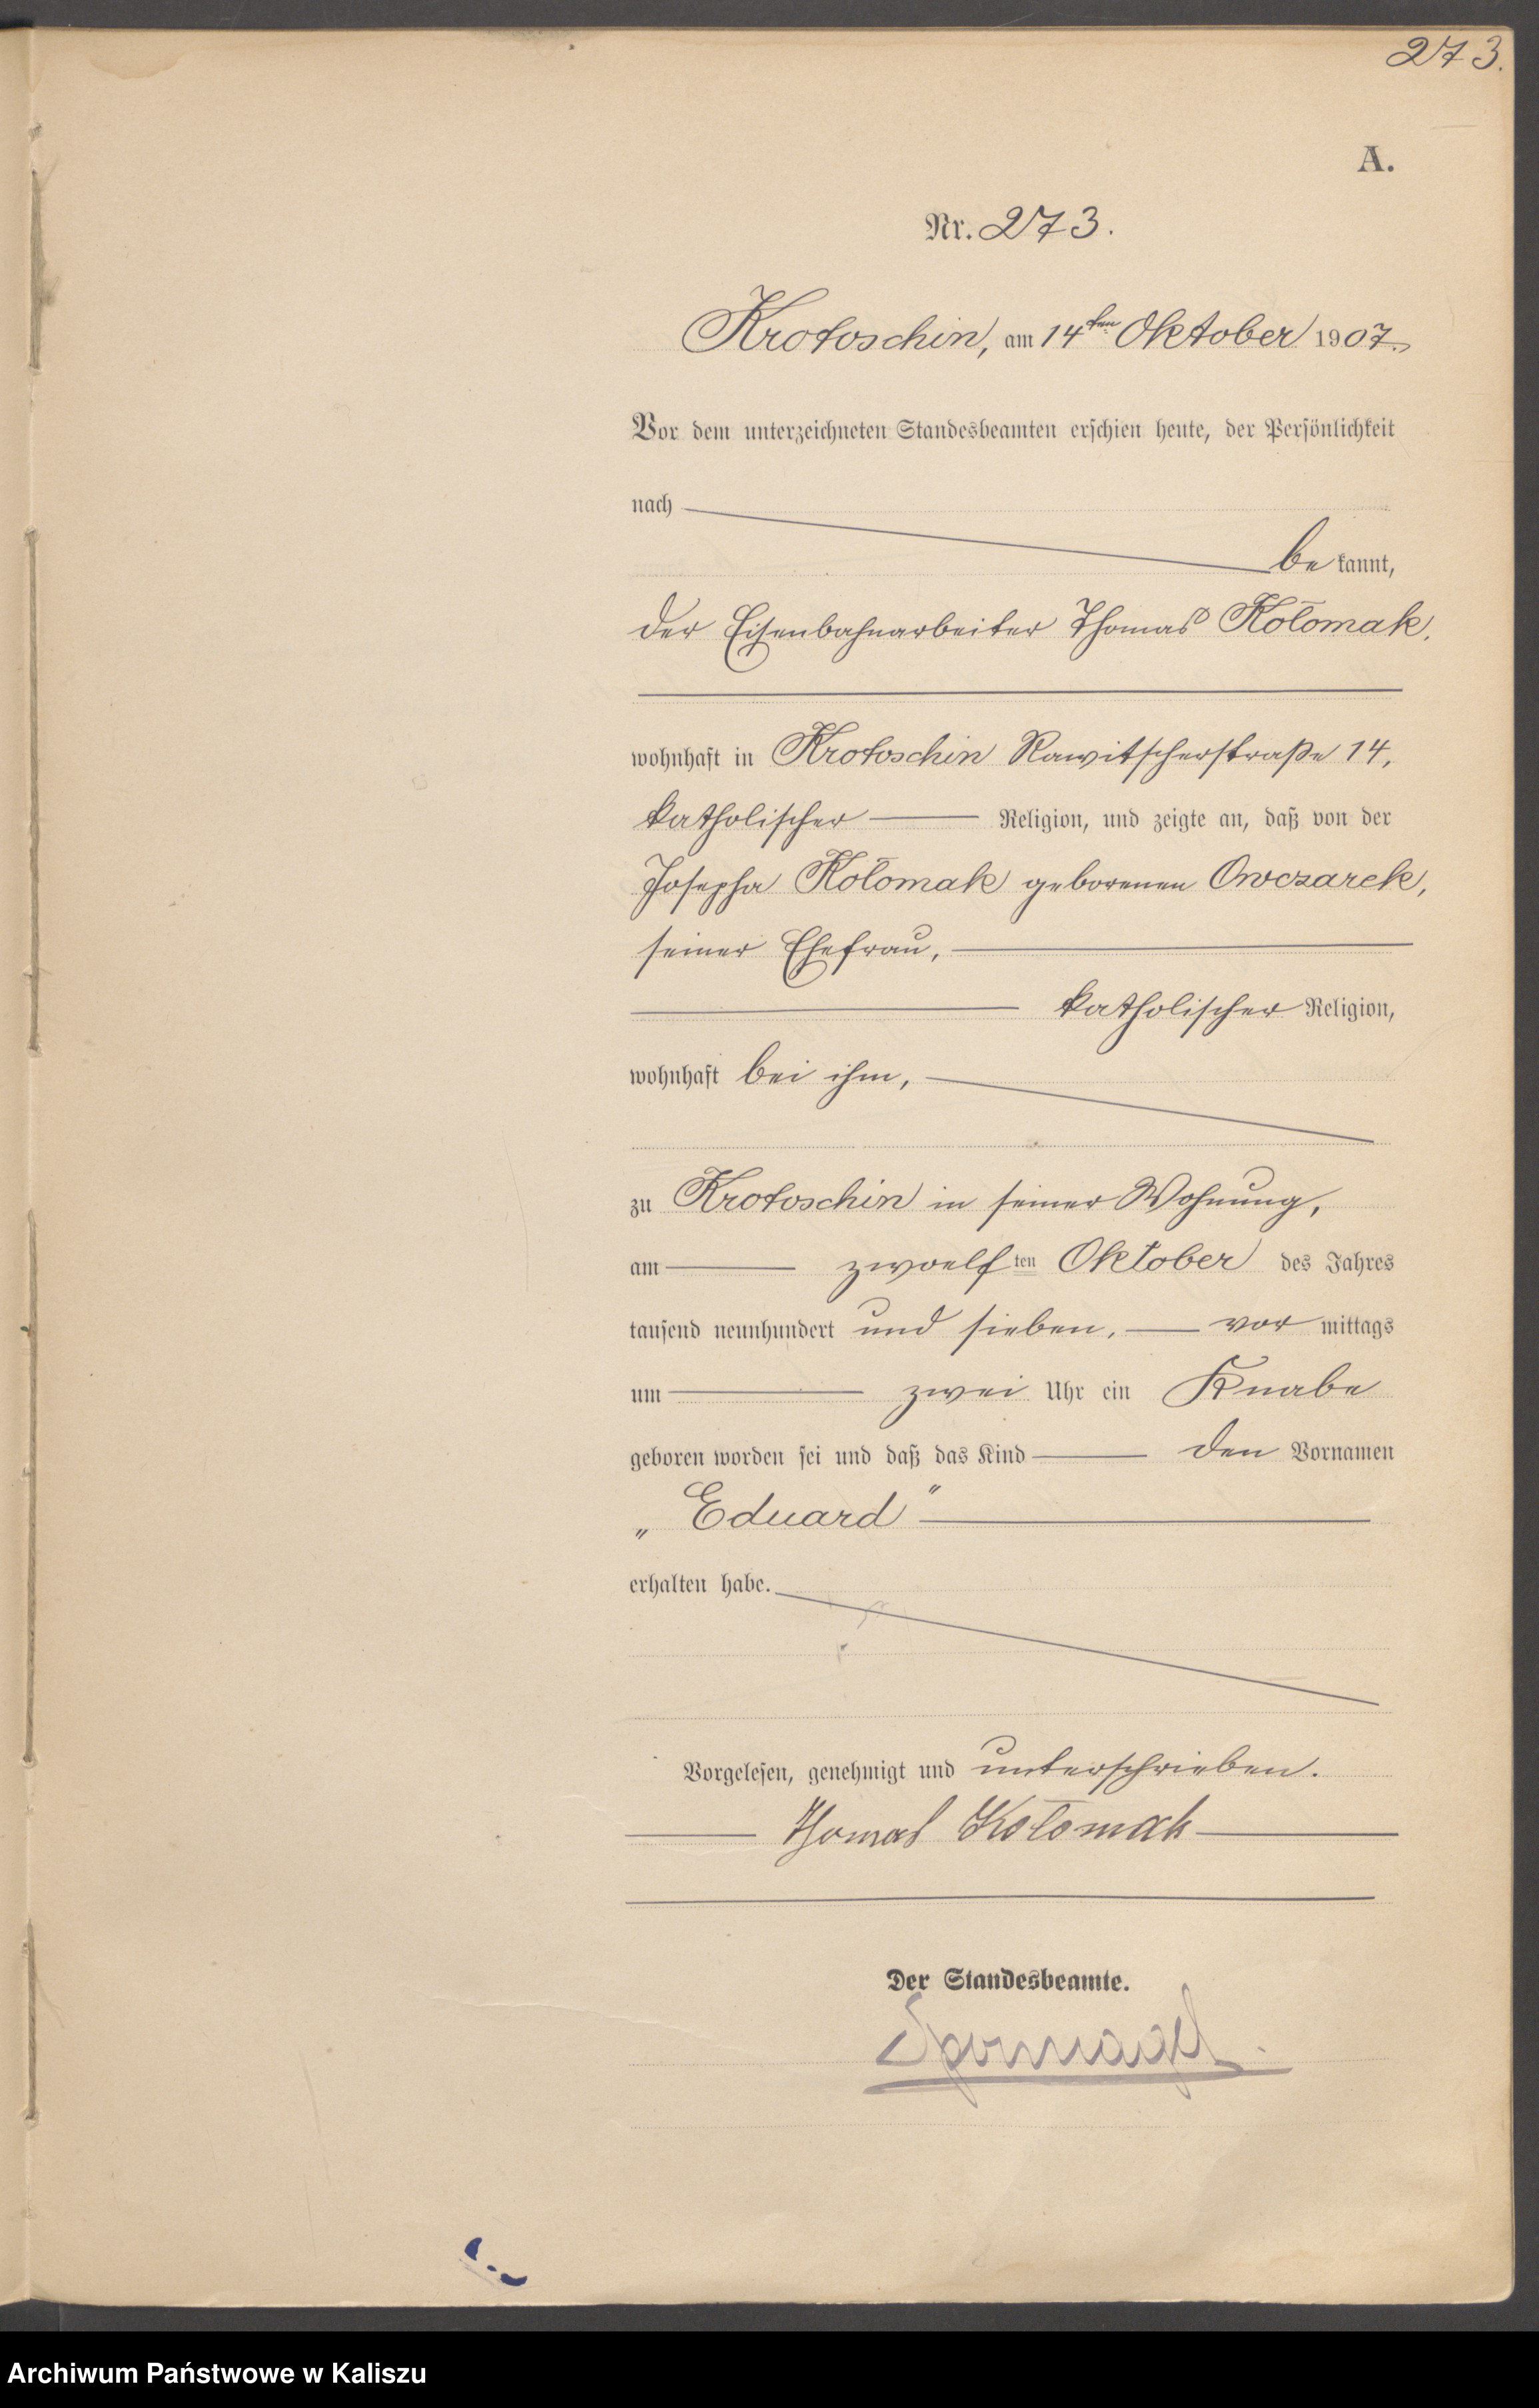 273.
A.
Nr. 273.
Krotoschin, am 14ten Oktober 1907.
Vor dem unterzeichneten Standesbeamten erschien heute, der Persönlichkeit
nach
be kannt,
der Eisenbahnarbeiter Thomas Kołomak,
wohnhaft in Krotoschin Rawitscherstraße 14,
katholischer Religion, und zeigte an, daß von der
Josepha Kołomak geborenen Owczarek,
seiner Ehefrau,
katholischer Religion,
wohnhaft bei ihm,
zu Krotoschin in seiner Wohnung,
am zwoelf ten Oktober des Jahres
tausend neunhundert und sieben, vor mittags
um zwei Uhr ein Knabe
geboren worden sei und daß das Kind den Vornamen
„Eduard“
erhalten habe.
Vorgelesen, genehmigt und unterschrieben.
Thomas Kołomak
Der Standesbeamte.
Archiwum Państwowe w Kaliszu